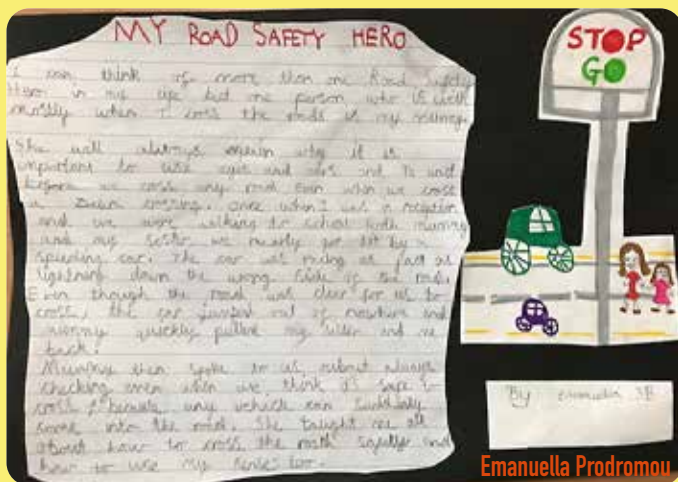 MY ROAD SAFETY HERO
I can think of more than one Road Safety
Hero in my life but one person who is with
mostly when I cross the roads is my mummy.
She will always explain why it is
important to use eyes and ears and to
before we cross any road even when we cross
a Zebra crossing. Once when I was in reception
and we were walking to school with mummy
and my sister we nearly got hit by a
speeding car. The car was riding as fast as
lightning down the wrong side of the road.
Even though the road was clear for us to
cross, the car jumped out of nowhere and
mummy quickly pulled my sister and me
back.
Mummy then spoke to us about always
checking even when we think it's safe to
cross because any vehicle can suddenly
come into the road. She taught me all
about how to cross the road safely and
how to use my senses too.
STOP
GO
By Emanuella 3B
Emanuella Prodromou